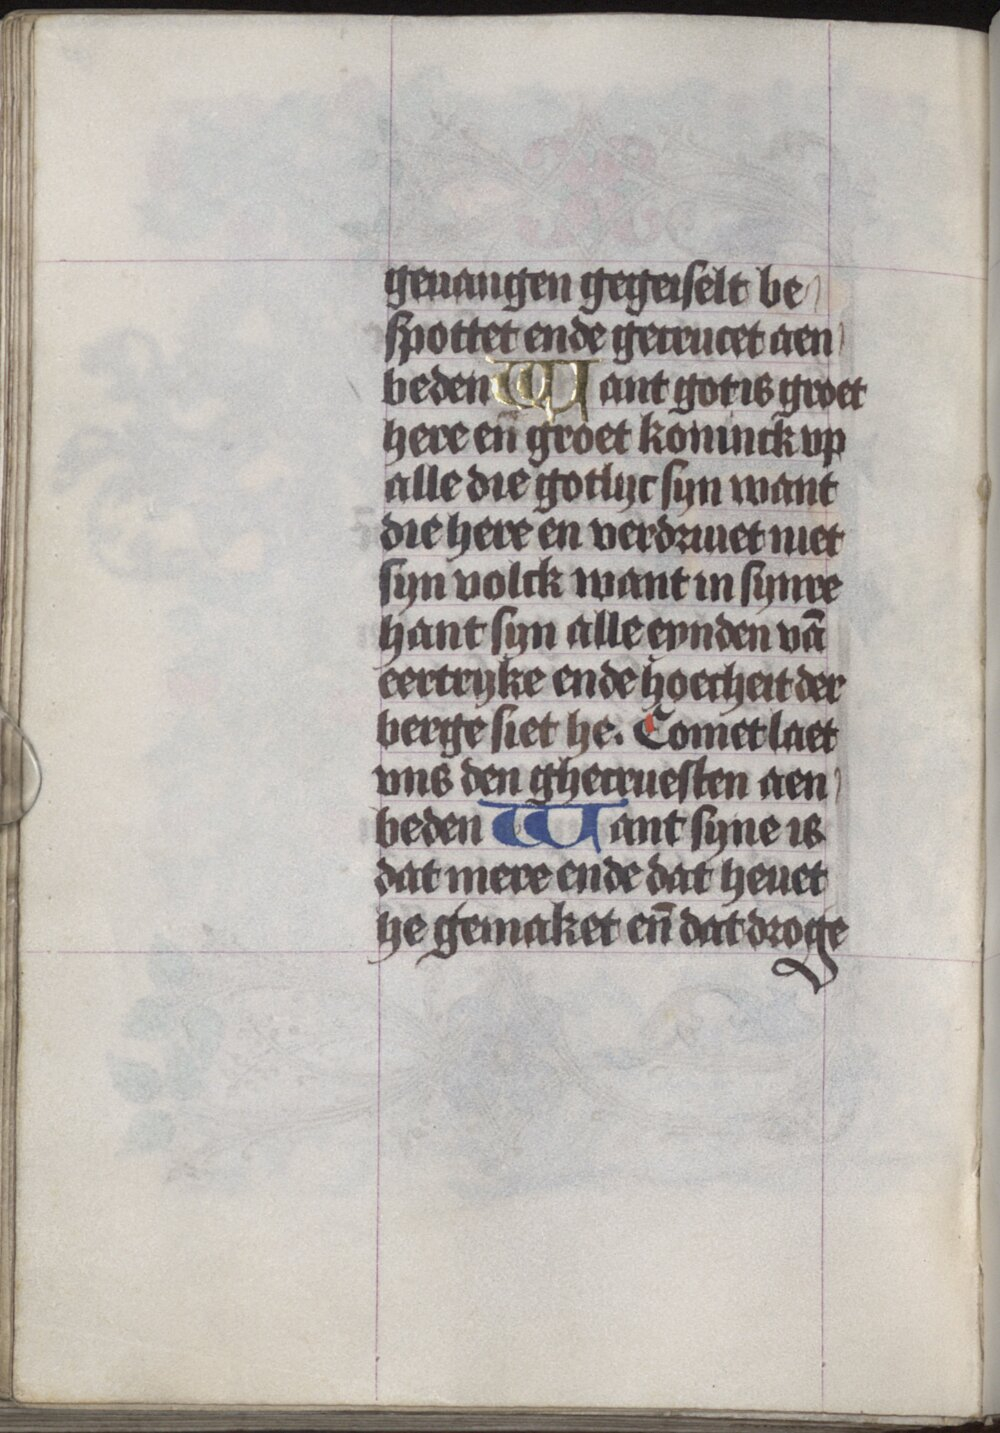 geuangen gegeiselt be
spottet ende gecrucet aen
beden Want got is groet
here en̄ groet koninck vp
alle die gotlyc syn want
die here en verdriuet niet
syn volck want in synre
hant syn alle eynden vā
eertryke ende hoecheit der
berge siet he. Comet laet
vns den ghecruesten aen
beden Want syne is
dat mere ende dat heuet
he gemaket en̄ dat droge